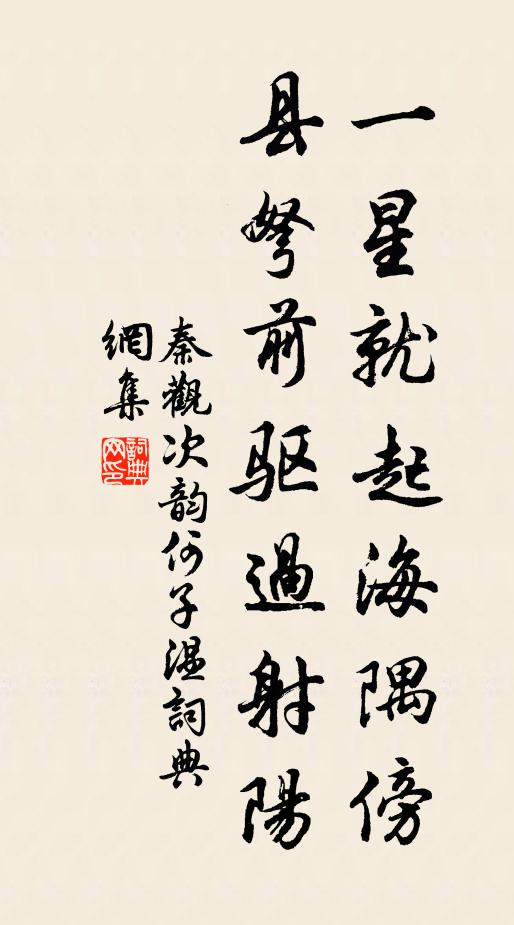 一星就起海隅傍
县弩前驱過射陽
秦觀次韵何子温詞典
網集
詞典
网印